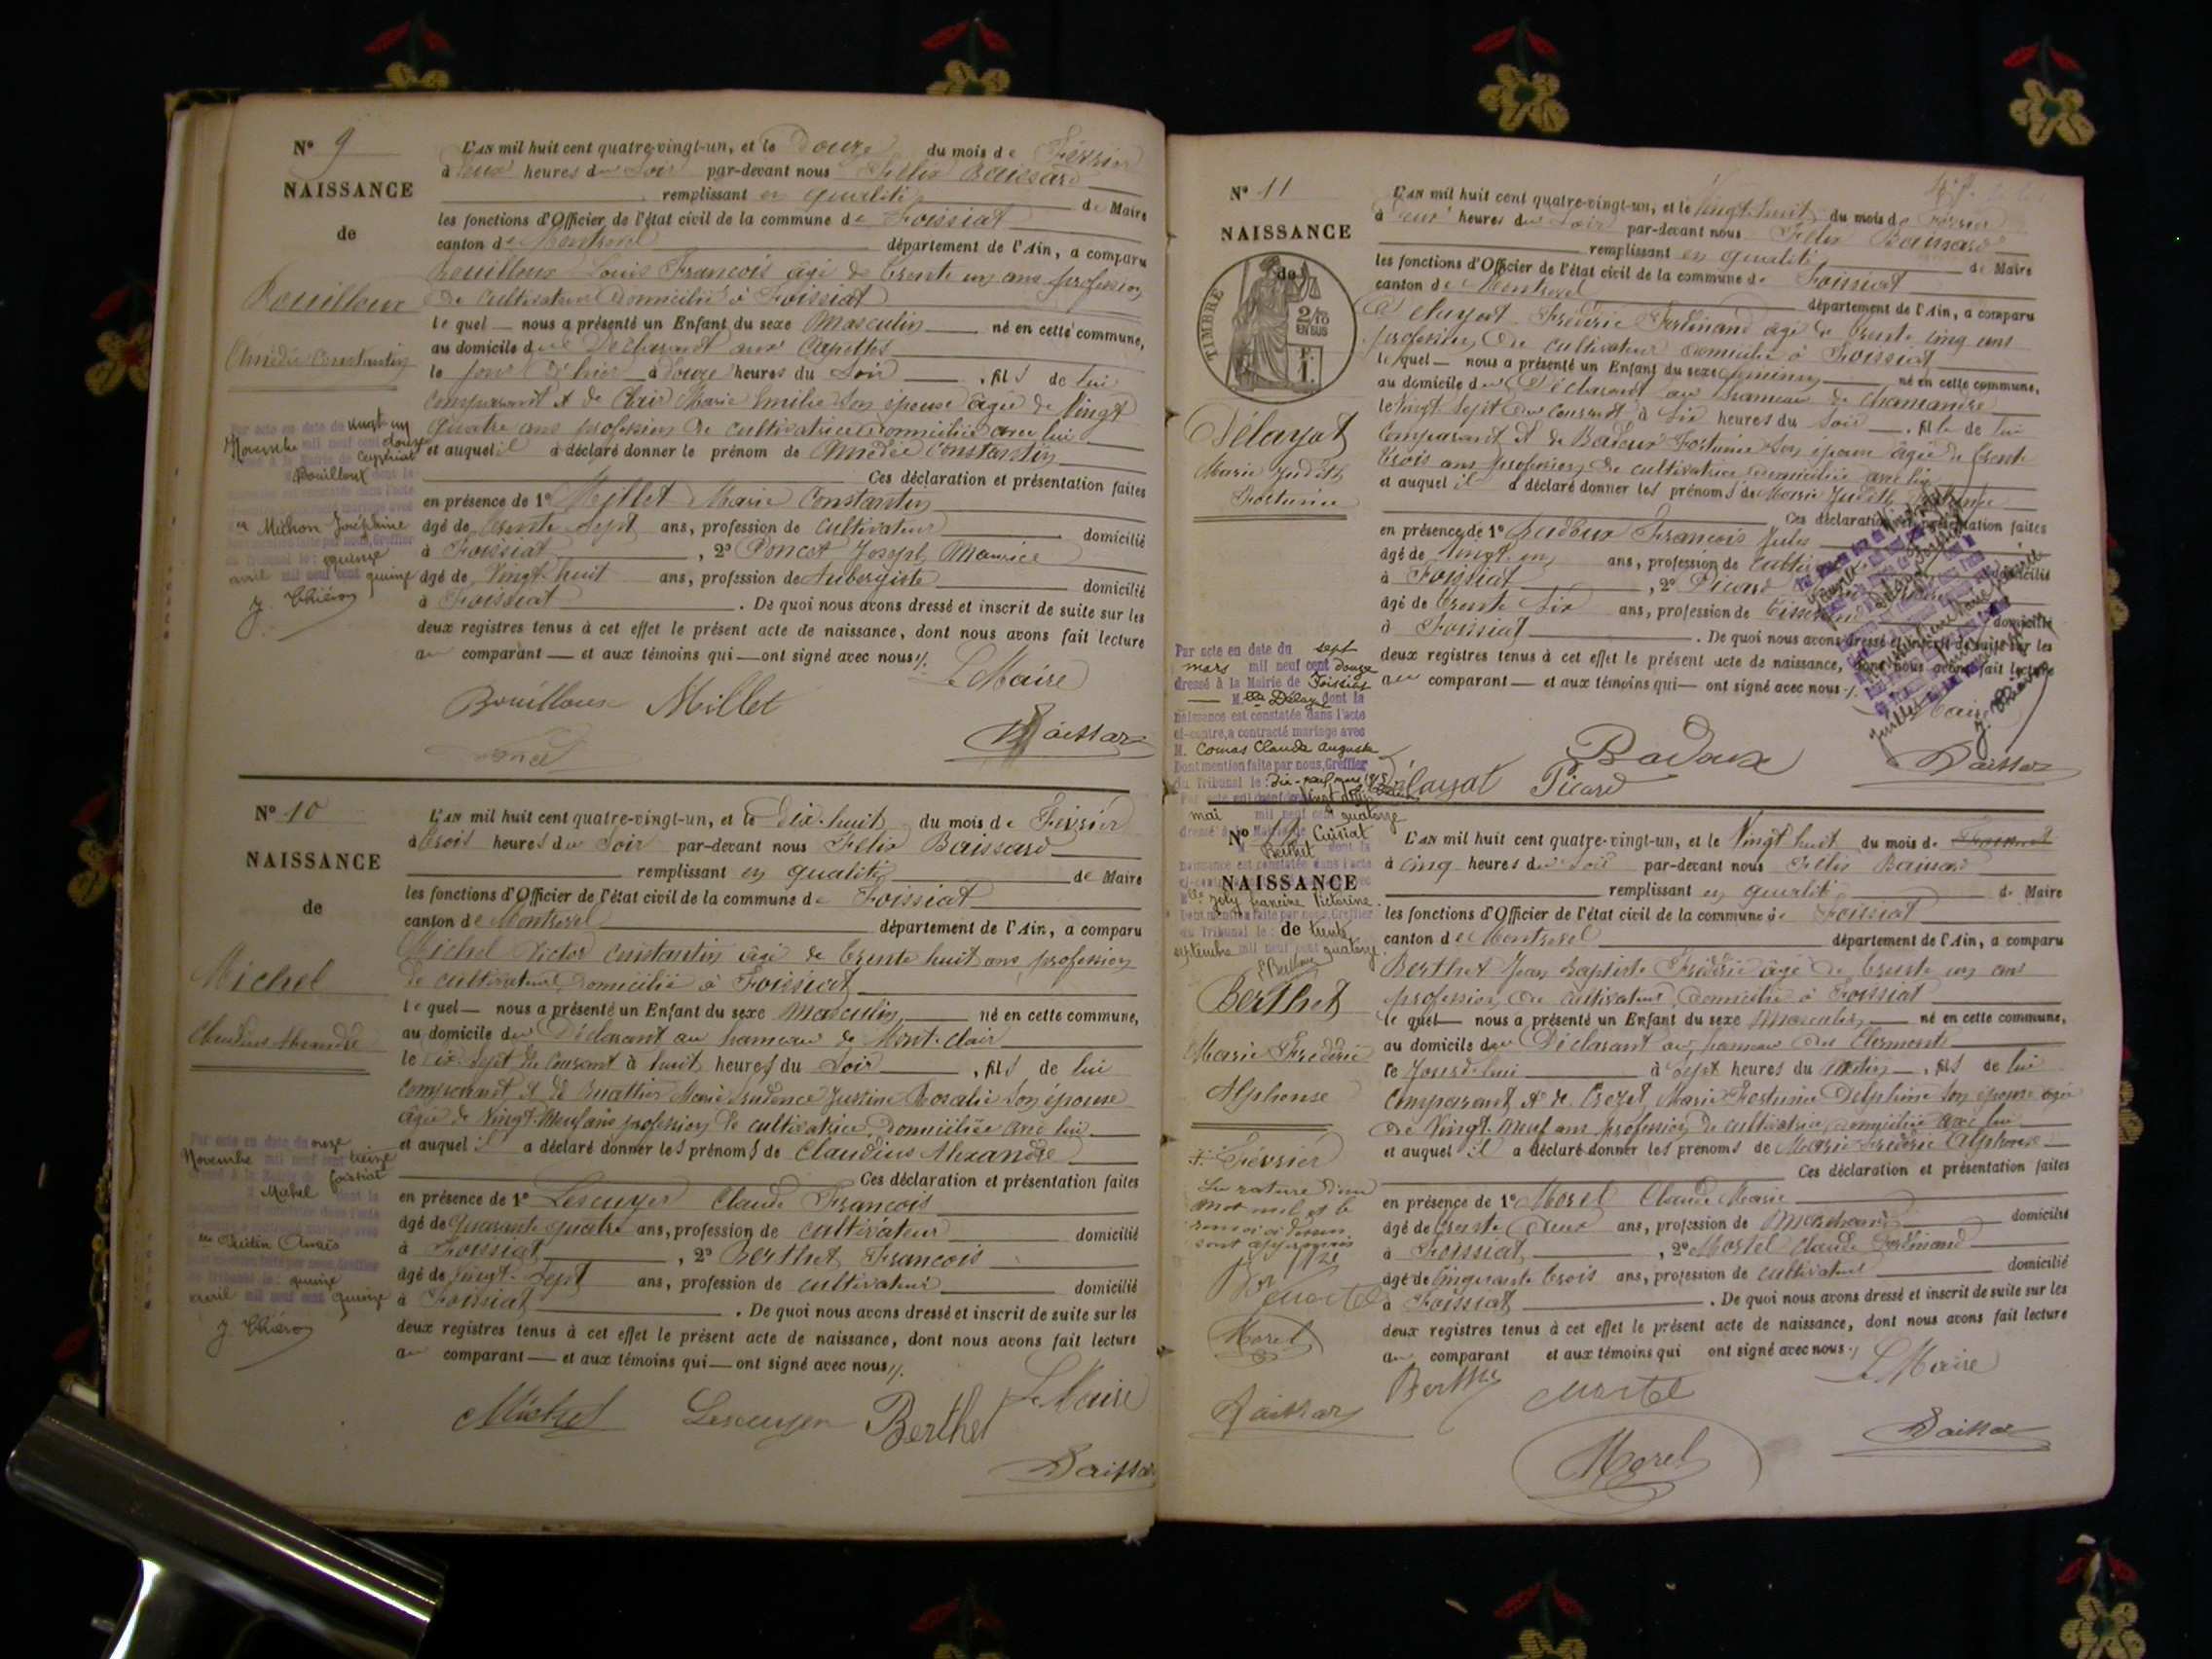 N° 9
NAISSANCE
de
Bouilloux
Amédée Constantin
L'AN mil huit cent quatre-vingt-un, et le Douze du mois de Février
à deux heures du Soir par-devant nous Félix Baissard
remplissant en qualité de Maire
les fonctions d'Officier de l'état civil de la commune de Foissiat
canton de Montrevel département de l'Ain, a comparu
Bouilloux Louis François âgé de trente un ans profession
de cultivateur domicilié à Foissiat
lequel nous a présenté un Enfant du sexe Masculin né en cette commune,
au domicile du Déclarant aux Capettes
le jour d'hier à douze heures du Soir, fils de lui
comparant et de Clair Marie Emilie son épouse âgée de Vingt
quatre ans profession de cultivatrice domiciliée avec lui
et auquel il a déclaré donner le prénom de Amédée Constantin
Ces déclaration et présentation faites
en présence de 1° Millet Marie Constantin
âgé de trente sept ans, profession de cultivateur domicilié
à Foissiat, 2° Poncet Joseph Maurice
âgé de Vingt-huit ans, profession de Aubergiste domicilié
à Foissiat. De quoi nous avons dressé et inscrit de suite sur les
deux registres tenus à cet effet le présent acte de naissance, dont nous avons fait lecture
au comparant et aux témoins qui ont signé avec nous
Le Maire
Bouilloux Millet
Baissard
Par acte en date du vingt un
Novembre mil neuf cent douze
Bouilloux dont la
Michon Joséphine
quinze
avril mil neuf cent quinze
N° 10
NAISSANCE
de
Michel
Claudius Alexandre
L'AN mil huit cent quatre-vingt-un, et le Dix-huit du mois de Février
à trois heures du Soir par-devant nous Félix Baissard
remplissant en qualité de Maire
les fonctions d'Officier de l'état civil de la commune de Foissiat
canton de Montrevel département de l'Ain, a comparu
Michel Victor Constantin âgé de trente huit ans profession
de cultivateur domicilié à Foissiat
lequel nous a présenté un Enfant du sexe Masculin né en cette commune,
au domicile du Déclarant au hameau de Mont-Clair
le dix-sept du courant à huit heures du Soir, fils de lui
comparant et de Marie Prudence Justine Rosalie son épouse
âgée de Vingt-Neuf ans profession de cultivatrice domiciliée avec lui
et auquel il a déclaré donner les prénoms de Claudius Alexandre
Ces déclaration et présentation faites
en présence de 1° Lescuyer Claude François
âgé de Quarante quatre ans, profession de cultivateur domicilié
à Foissiat, 2° Berthet François
âgé de Vingt-Sept ans, profession de cultivateur domicilié
à Foissiat. De quoi nous avons dressé et inscrit de suite sur les
deux registres tenus à cet effet le présent acte de naissance, dont nous avons fait lecture
au comparant et aux témoins qui ont signé avec nous
Le Maire
Michel Lescuyer Berthet
Baissard
Par acte en date du onze
Novembre mil neuf cent treize
Foissiat
Michel dont la
quinze
avril mil neuf cent quinze
N° 11
NAISSANCE
de
TIMBRE
2/10
EN SUS
F.
1.
Délayat
Marie Judith
Fortunie
L'AN mil huit cent quatre-vingt-un, et le Vingt-huit du mois de Février
à deux heures du Soir par-devant nous Félix Baissard
remplissant en qualité de Maire
les fonctions d'Officier de l'état civil de la commune de Foissiat
canton de Montrevel département de l'Ain, a comparu
Délayat Frédéric Ferdinand âgé de trente cinq ans
profession de cultivateur domicilié à Foissiat
lequel nous a présenté un Enfant du sexe féminin né en cette commune,
au domicile du Déclarant au hameau de Chamandre
le Vingt Sept du courant à Six heures du Soir, fille de lui
comparant et de Badoux Fortunie son épouse âgée de trente
trois ans profession de cultivatrice domiciliée avec lui
et auquel il a déclaré donner les prénoms de Marie Judith Fortunie
Ces déclaration et présentation faites
en présence de 1° Badoux François Jules
âgé de Vingt-un ans, profession de
à Foissiat, 2° Picard
âgé de trente Six ans, profession de domicilié
à Foissiat. De quoi nous avons dressé et inscrit de suite sur les
deux registres tenus à cet effet le présent acte de naissance, dont nous avons fait lecture
au comparant et aux témoins qui ont signé avec nous
Badoux
Délayat Picard Baissard
Par acte en date du sept
mars mil neuf cent douze
dressé à la Mairie de Foissiat
M.elle Délayat dont la
naissance est constatée dans l'acte
ci-contre, a contracté mariage avec
M. Comas Claude Auguste
Dont mention faite par nous, Greffier
du Tribunal le:
mai mil neuf cent quatorze
Cuisiat
Berthet dont la
naissance est constatée dans l'acte
Joly Francine Victorine
Dont mention faite par nous, Greffier
du Tribunal le: trente
septembre mil neuf cent quatorze
N° 12
NAISSANCE
de
Berthet
Marie Frédéric
Alphonse
L'AN mil huit cent quatre-vingt-un, et le Vingt huit du mois de
à cinq heures du Soir par-devant nous Félix Baissard
remplissant en qualité de Maire
les fonctions d'Officier de l'état civil de la commune de Foissiat
canton de Montrevel département de l'Ain, a comparu
Berthet Jean Baptiste Frédéric âgé de trente un ans
profession de cultivateur domicilié à Foissiat
lequel nous a présenté un Enfant du sexe Masculin né en cette commune,
au domicile du Déclarant au hameau des Clermonts
le jourd'hui à Sept heures du matin, fils de lui
comparant et de Crozet Marie Fortunie Delphine son épouse âgée
de Vingt-neuf ans profession de cultivatrice domiciliée avec lui
et auquel il a déclaré donner les prénoms de Marie Frédéric Alphonse
Ces déclaration et présentation faites
en présence de 1° Morel Claude Marie
âgé de trente deux ans, profession de Marchand domicilié
à Foissiat, 2° Martel Claude Ferdinand
âgé de Cinquante trois ans, profession de cultivateur domicilié
à Foissiat. De quoi nous avons dressé et inscrit de suite sur les
deux registres tenus à cet effet le présent acte de naissance, dont nous avons fait lecture
au comparant et aux témoins qui ont signé avec nous
Le Maire
Berthet Martel
Morel
Baissard
Février
La rature d'un
mot nul et le
renvoi ci dessus
sont approuvés
Martel
Morel
Baissard